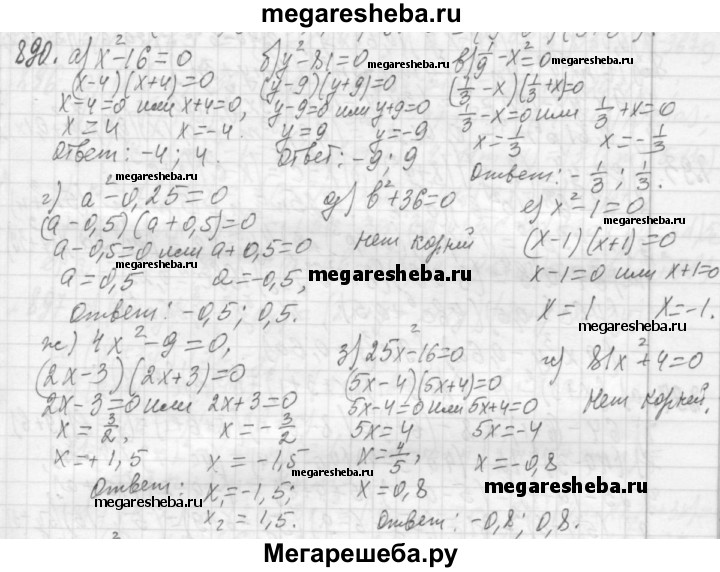 megaresheba.ru
890. а) x²-16=0
(x-4)(x+4)=0
x-4=0 или x+4=0,
x=4 x=-4.
Ответ: -4; 4.
б) y²-81=0
(y-9)(y+9)=0
y-9=0 или y+9=0
y=9 y=-9
Ответ: -9; 9
в) 1/9-x²=0
(1/3-x)(1/3+x)=0
1/3-x=0 или 1/3+x=0
x=1/3 x=-1/3
Ответ: -1/3; 1/3.
megaresheba.ru
megaresheba.ru
megaresheba.ru
г) a²-0,25=0
(a-0,5)(a+0,5)=0
a-0,5=0 или a+0,5=0
a=0,5 a=-0,5,
Ответ: -0,5; 0,5.
д) b²+36=0
Нет корней
megaresheba.ru
е) x²-1=0
(x-1)(x+1)=0
x-1=0 или x+1=0
x=1 x=-1.
megaresheba.ru
ж) 4x²-9=0,
(2x-3)(2x+3)=0
2x-3=0 или 2x+3=0
x=3/2, x=-3/2
x=+1,5 x=-1,5
Ответ: x₁=-1,5;
x₂=1,5.
megaresheba.ru
з) 25x²-16=0
(5x-4)(5x+4)=0
5x-4=0 или 5x+4=0
5x=4 5x=-4
x=4/5, x=-0,8
x=0,8
Ответ: -0,8; 0,8.
и) 81x²+4=0
Нет корней.
megaresheba.ru
megaresheba.ru
Мегарешеба.ру